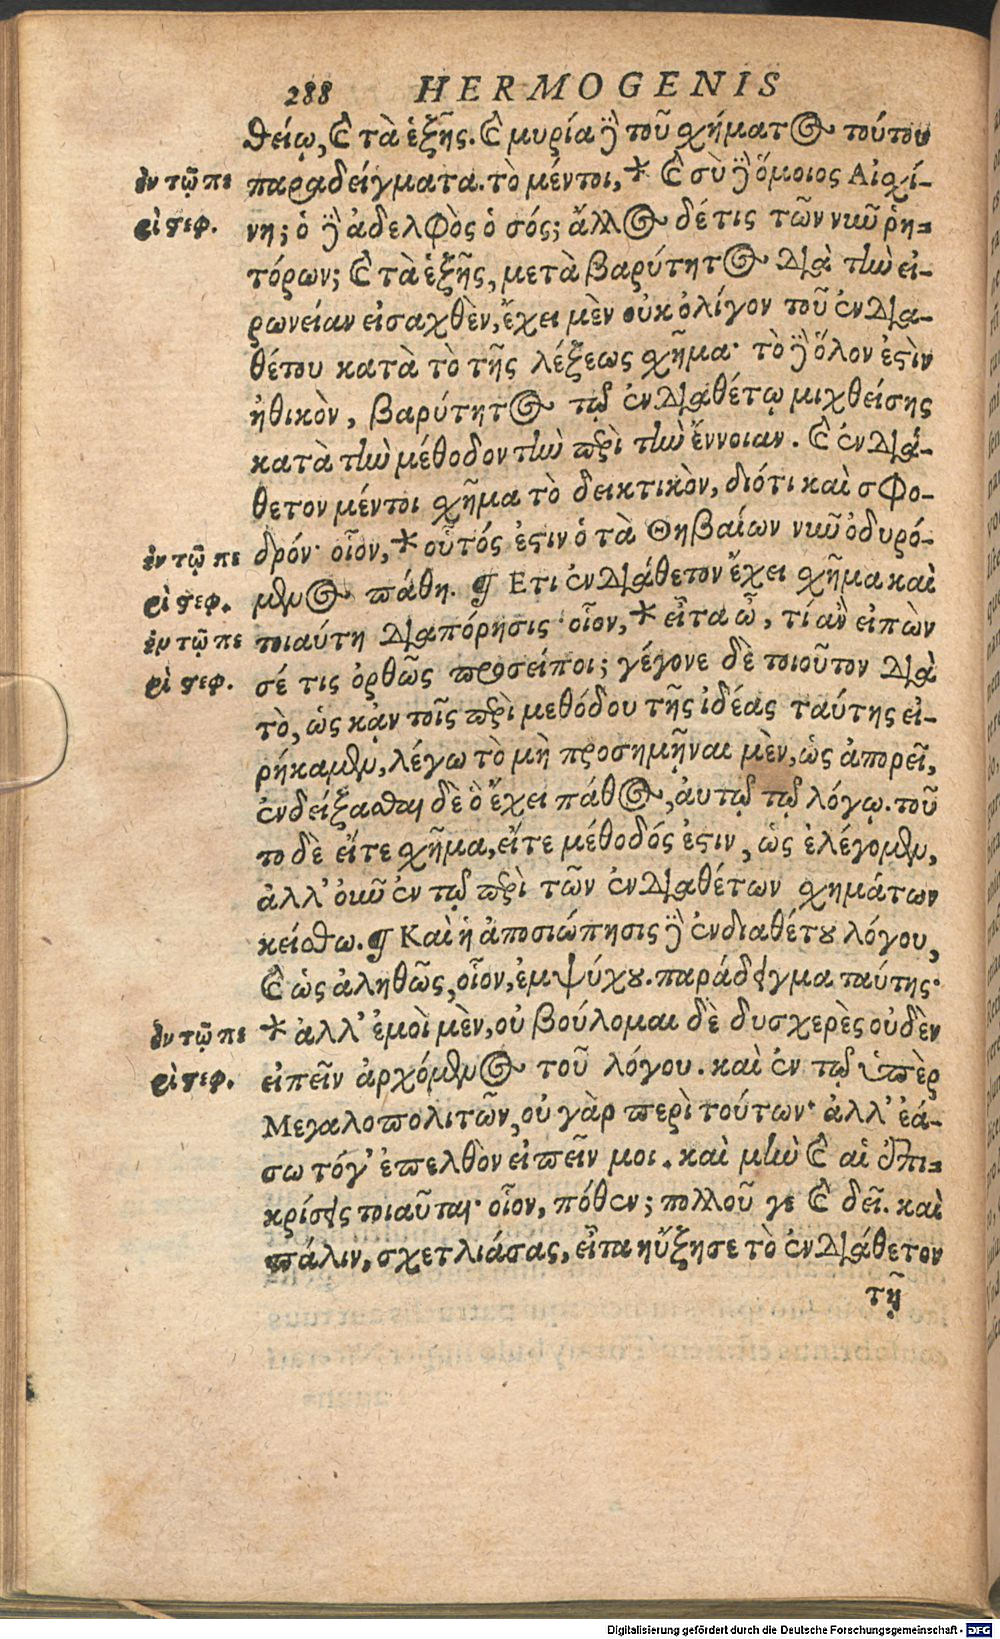 288 HERMOGENIS
θείῳ, καὶ τὰ ἑξῆς. καὶ μυρία δὲ τοῦ σχήματος τούτου
ἐν τῷ πε
παραδείγματα. τὸ μέντοι, * καὶ σὺ δὲ ὅμοιος Αἰσχί-
ρὶ στεφ.
νη; ὁ δὲ ἀδελφὸς ὁ σός; ἄλλος δέ τις τῶν νῦν ῥη-
τόρων; καὶ τὰ ἑξῆς, μετὰ βαρύτητος διὰ τὴν εἰ-
ρωνείαν εἰσαχθὲν, ἔχει μὲν οὐκ ὀλίγον τοῦ ἐνδια-
θέτου κατὰ τὸ τῆς λέξεως σχῆμα· τὸ δὲ ὅλον ἐστὶν
ἠθικὸν, βαρύτητος τῷ ἐνδιαθέτῳ μιχθείσης
κατὰ τὴν μέθοδον τὴν περὶ τὴν ἔννοιαν. καὶ ἐνδιά-
θετον μέντοι σχῆμα τὸ δεικτικὸν, διότι καὶ σφο-
ἐν τῷ πε
δρόν· οἷον, * οὗτός ἐστιν ὁ τὰ Θηβαίων νῦν ὀδυρό-
ρὶ στεφ.
μενος πάθη. ¶ Ετι ἐνδιάθετον ἔχει σχῆμα καὶ
ἐν τῷ πε
τοιαύτη διαπόρησις· οἷον, * εἶτα ὦ, τί ἂν εἰπὼν
ρὶ στεφ.
σέ τις ὀρθῶς προσείποι; γέγονε δὲ τοιοῦτον διὰ
τὸ, ὡς κᾀν τοῖς περὶ μεθόδου τῆς ἰδέας ταύτης εἰ-
ρήκαμεν, λέγω τὸ μὴ προσημῆναι μὲν, ὡς ἀπορεῖ,
ἐνδείξασθαι δὲ ὃ ἔχει πάθος, αὐτῷ τῷ λόγῳ. τοῦ
το δὲ εἴτε σχῆμα, εἴτε μέθοδός ἐστιν, ὡς ἐλέγομεν,
ἀλλ' οὖν ἐν τῷ περὶ τῶν ἐνδιαθέτων σχημάτων
κείσθω. ¶ Καὶ ἡ ἀποσιώπησις δὲ ἐνδιαθέτου λόγου,
καὶ ὡς ἀληθῶς, οἷον, ἐμψύχου. παράδειγμα ταύτης·
ἐν τῷ πε
* ἀλλ' ἐμοὶ μὲν, οὐ βούλομαι δὲ δυσχερὲς οὐδὲν
ρὶ στεφ.
εἰπεῖν ἀρχόμενος τοῦ λόγου. καὶ ἐν τῷ ὑπὲρ
Μεγαλοπολιτῶν, οὐ γὰρ περὶ τούτων· ἀλλ' ἐά-
σω τόγ' ἐπελθὸν εἰπεῖν μοι. καὶ μὴν καὶ αἱ ἐπι-
κρίσεις τοιαῦται· οἷον, πόθεν; πολλοῦ γε καὶ δεῖ. καὶ
πάλιν, σχετλιάσας, εἶτα ηὔξησε τὸ ἐνδιάθετον
τῇ
Digitalisierung gefördert durch die Deutsche Forschungsgemeinschaft - DFG